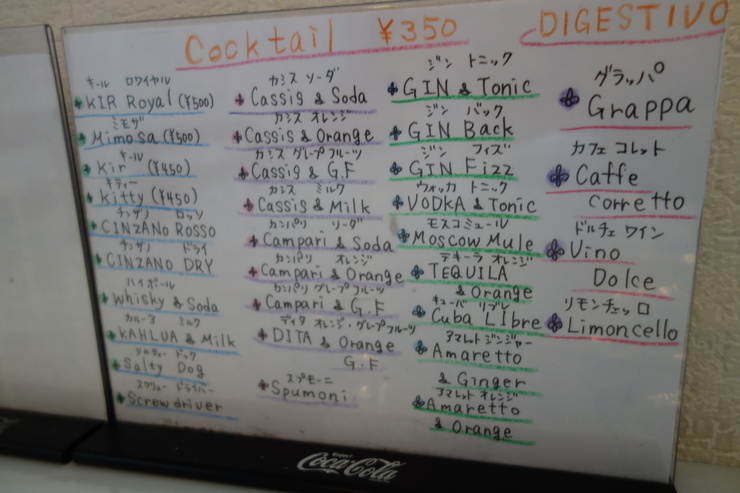 Cocktail ¥350
キール ロワイヤル
KIR Royal (¥500)
ミモザ
Mimosa (¥500)
キール
Kir (¥450)
キティー
Kitty (¥450)
チンザノ ロッソ
CINZANO ROSSO
チンザノ ドライ
CINZANO DRY
ハイボール
Whisky & Soda
カルーア ミルク
KAHLUA & Milk
ソルティー ドッグ
Salty Dog
スクリュー ドライバー
Screwdriver
カシス ソーダ
Cassis & Soda
カシス オレンジ
Cassis & Orange
カシス グレープフルーツ
Cassis & G.F
カシス ミルク
Cassis & Milk
カンパリ ソーダ
Campari & Soda
カンパリ オレンジ
Campari & Orange
カンパリ グレープフルーツ
Campari & G.F
ディタ オレンジ・グレープフルーツ
DITA & Orange
G.F
スプモーニ
Spumoni
ジン トニック
GIN & Tonic
ジン バック
GIN Back
ジン フィズ
GIN Fizz
ウォッカ トニック
VODKA & Tonic
モスコミュール
Moscow Mule
テキーラ オレンジ
TEQUILA
& Orange
キューバ リブレ
Cuba LIbre
アマレット ジンジャー
Amaretto
& Ginger
アマレット オレンジ
Amaretto
& Orange
DIGESTIVO
グラッパ
Grappa
カフェ コレット
Caffe
corretto
ドルチェ ワイン
Vino
Dolce
リモンチェッロ
Limoncello
Enjoy
Coca-Cola